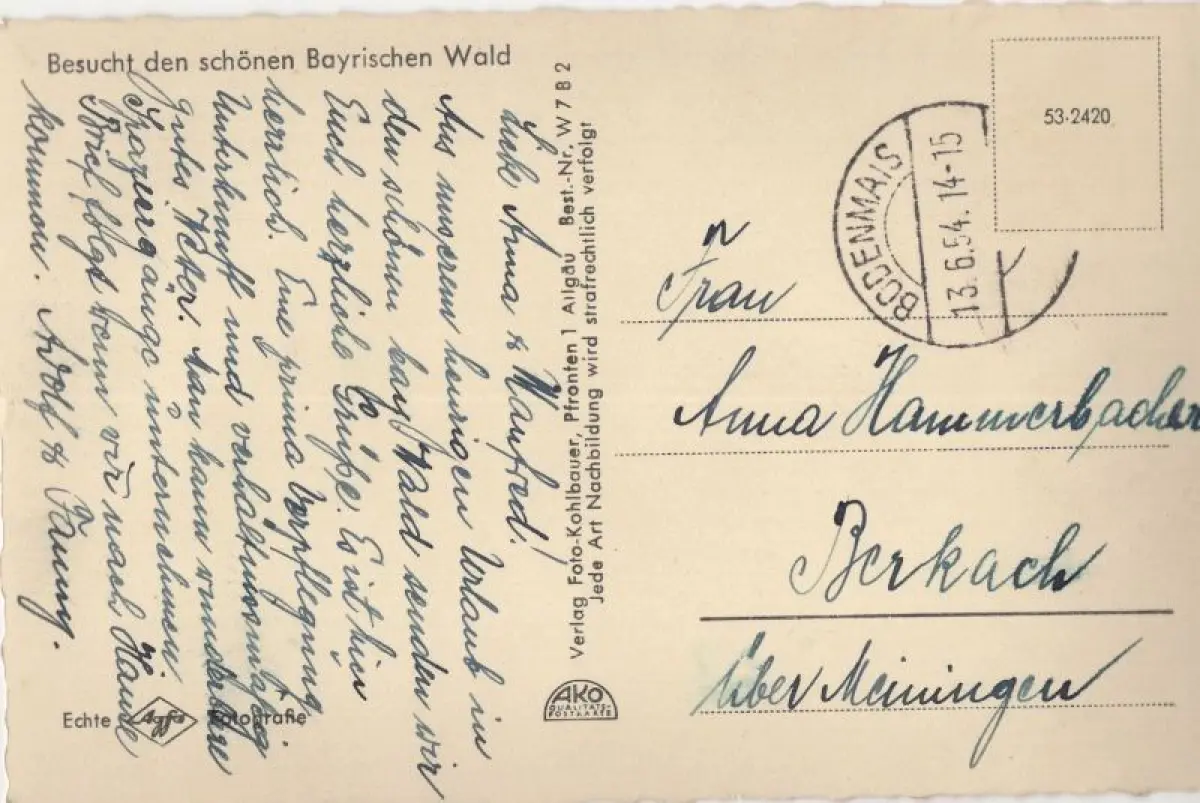 Besucht den schönen Bayrischen Wald
Liebe Anna & Manfred!
Aus unserem heurigen Urlaub in
den schönen bayr. Wald senden wir
Euch herzliche Grüße. Es ist hier
herrlich. Eine prima Verpflegung
Unterkunft und verhältnismäßig
gutes Wetter. Man kann wunderbare
Spaziergänge unternehmen.
Brief folgt wenn wir nach Hause
kommen. Adolf & Fanny.
Echte Agfa Fotografie
Verlag Foto-Kohlbauer, Pfronten 1 Allgäu Best.-Nr. W 7 B 2
Jede Art Nachbildung wird strafrechtlich verfolgt
AKO
QUALITÄTS-
POSTKARTE
53-2420
BODENMAIS
13.6.54.14-15
Frau
Anna Hammerbacher
Berkach
über Meiningen